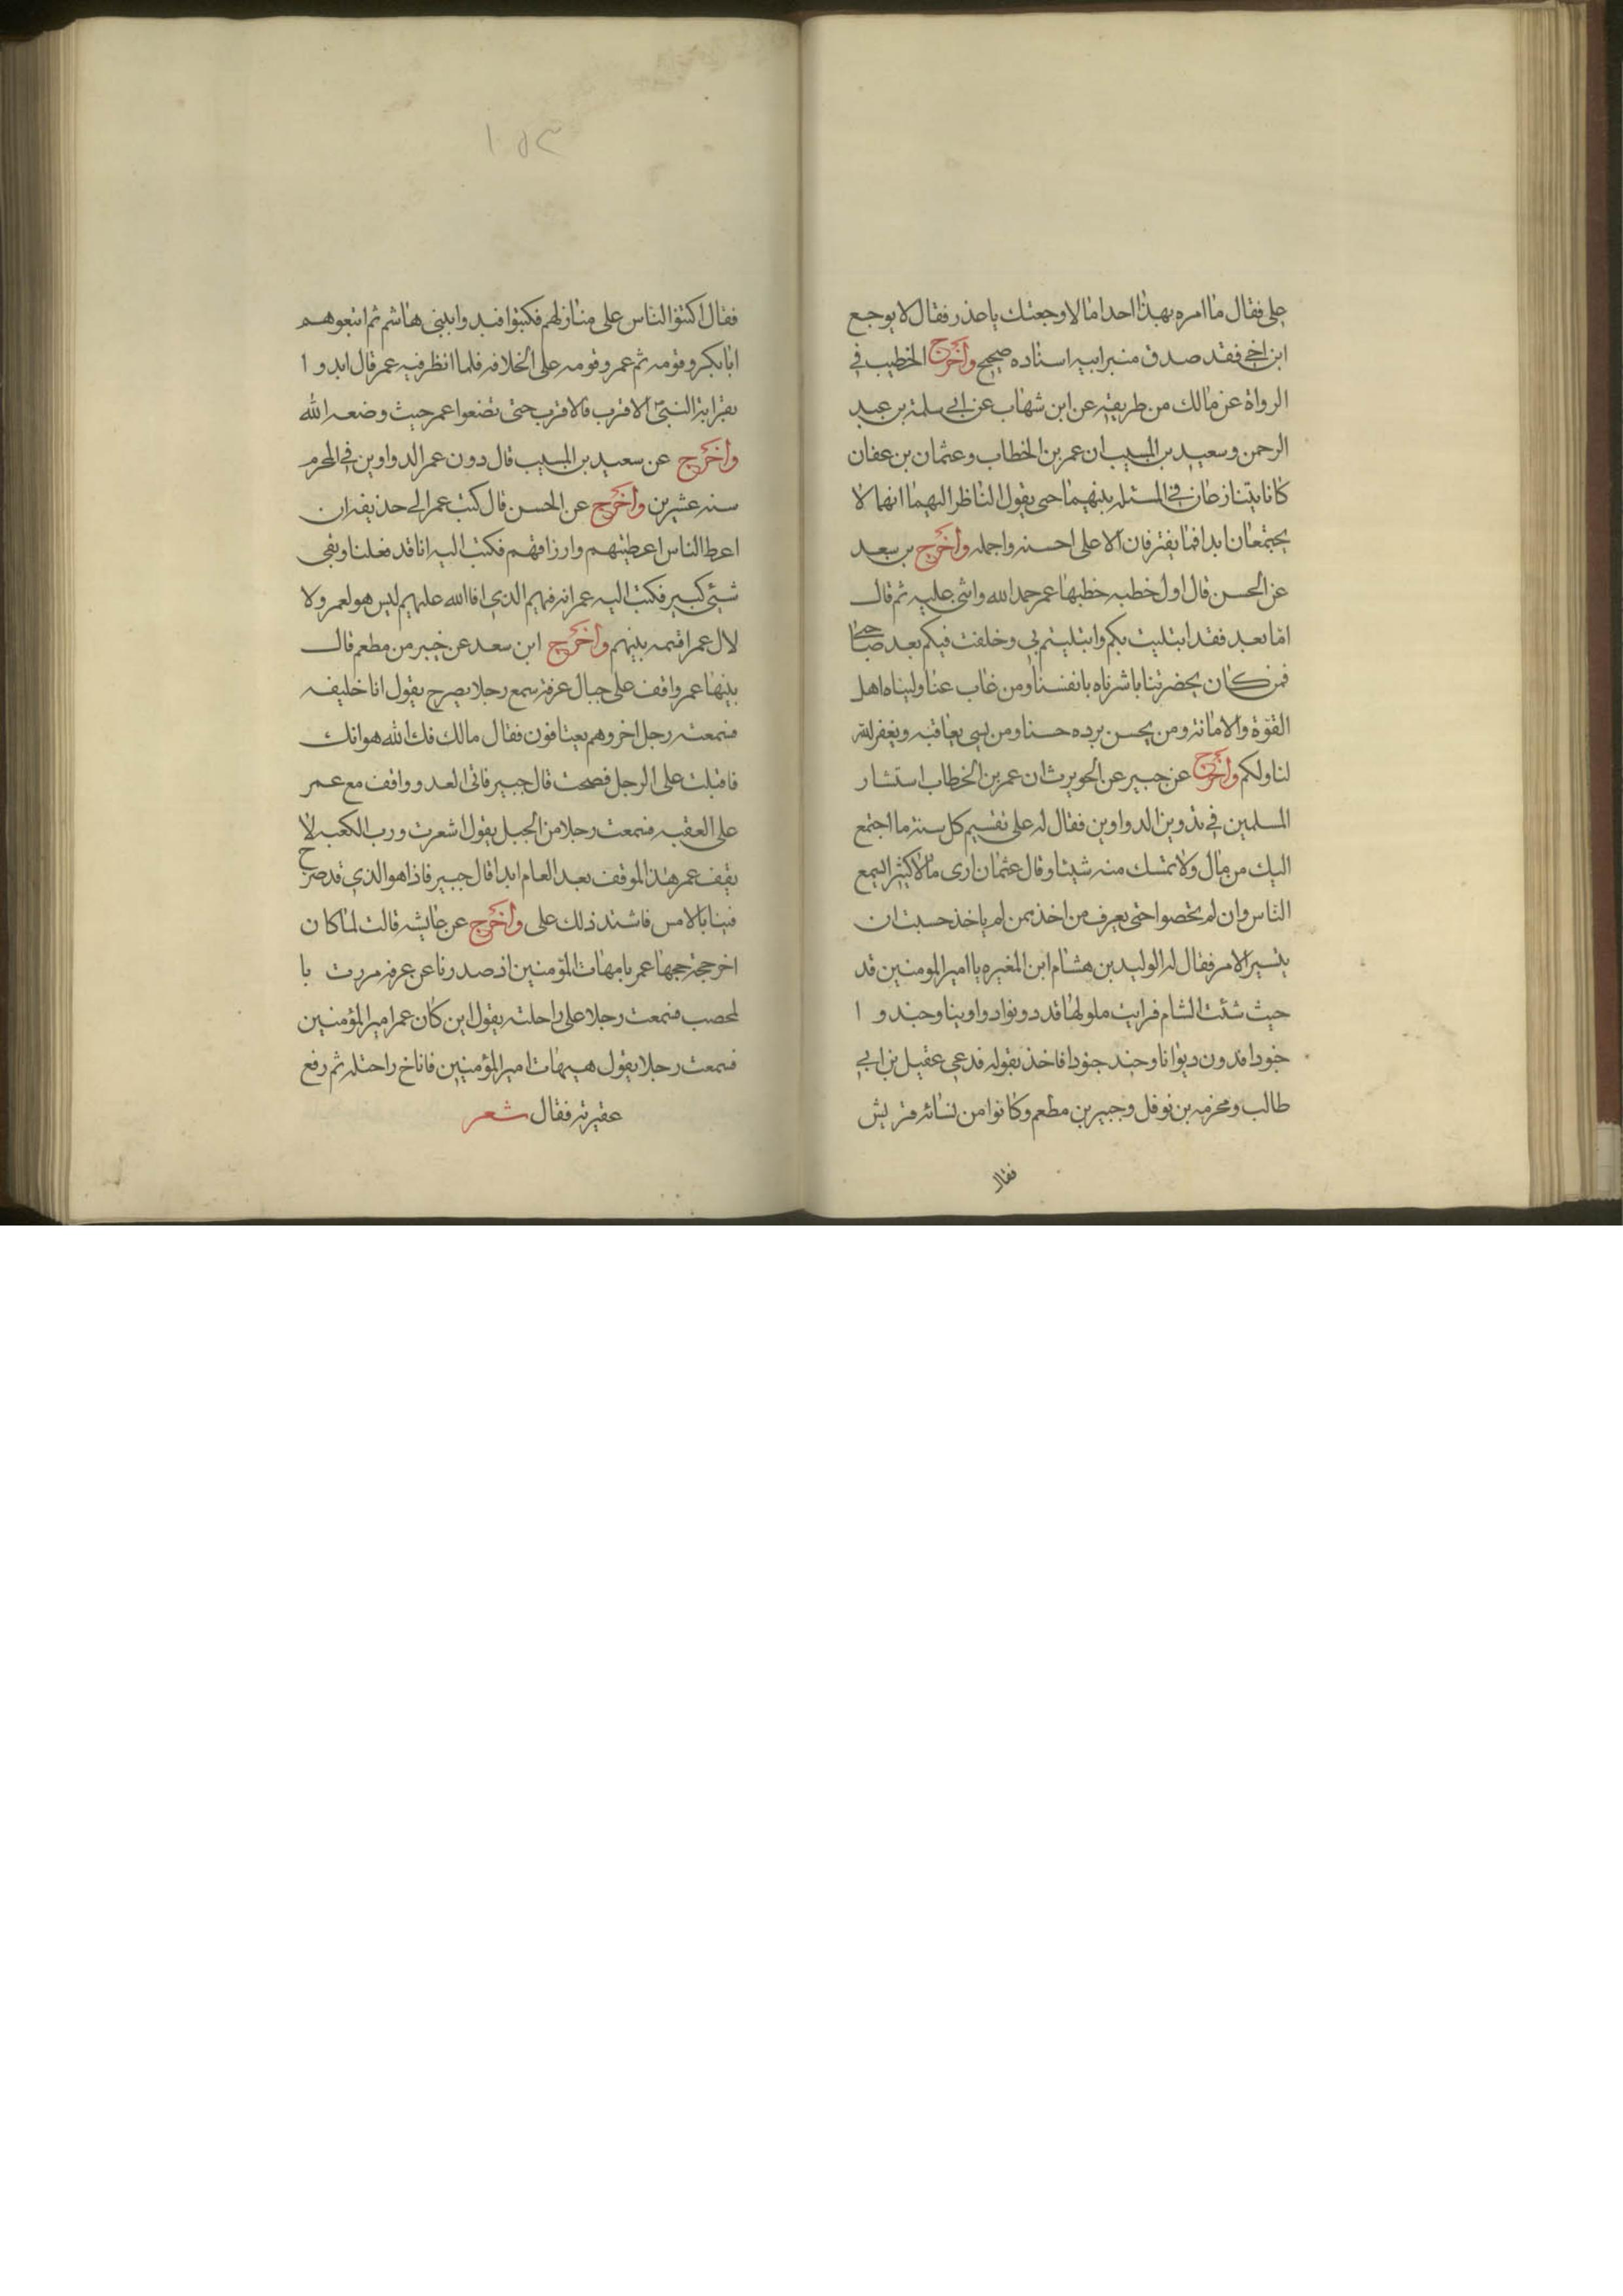 علي فقال ما امره بهذا احد اما لاوجعتك ياعذر فقال لا يوجع
ابن اخي فقد صدق منبر ابيه اسناده صحيح واخرج الخطيب في
الرواة عن مالك من طريقه عن ابن شهاب عن ابي سلمة بن عبد
الرحمن وسعيد بن المسيب ان عمر بن الخطاب وعثمان بن عفان
كانا يتنازعان في المسئله بينهما حتى يقول الناظر اليهما انهما لا
يجتمعان ابدا فما يفترقان الا على احسنه واجمله واخرج بن سعد
عن الحسن قال اول خطبه خطبها عمر حمد الله واثنى عليه ثم قال
اما بعد فقد ابتليت بكم وابتليتم بي وخلفت فيكم بعد صاحبى
فمن كان بحضرتنا باشرناه بانفسنا ومن غاب عنا وليناه اهل
القوة والامانة ومن يحسن يرده حسنا ومن يسى يعاقبه ويغفر الله
لنا ولكم واخرج عن جبير عن الحويرث ان عمر بن الخطاب استشار
المسلمين في تدوين الدواوين فقال له على تقسيم كل سنة ما اجتمع
اليك من مال ولا تمسك منه شيئا وقال عثمان ارى مالا كثيرا يسع
الناس وان لم يحصوا حتى يعرف من اخذ ممن لم ياخذ حسبت ان
يتسير الامر فقال له الوليد بن هشام ابن المغيره يا امير المومنين قد
حيث شئت الشام فرايت ملولها قد دونوا دواوينا وجندو ا
جنودا فدون ديوانا وجند جنودا فاخذ بقوله فدعي عقيل بن ابي
طالب ومخرمه بن نوفل وجبير بن مطعم وكانوا من نسائه قريش
فقال
١٥٣
فقال اكتبوا الناس على منازلهم فكتبوا فبدوا ببني هاشم ثم اتبعوهم
ابا بكر وقومه ثم عمر وقومه على الخلافه فلما انظر فيه عمر قال ابدو ا
بقرابة النبي الاقرب فالاقرب حتى تضعوا عمر حيث وضعه الله
واخرج عن سعيد بن المسيب قال دون عمر الدواوين في المحرم
سنه عشرين واخرج عن الحسن قال كتب عمر الى حذيفه ان
اعط الناس اعطيتهم وارزاقهم فكتب اليه انا قد فعلنا وبقى
شيئ كبير فكتب اليه عمر انه فيهم الذي افا الله عليهم ليس هو لعمر ولا
لال عمر اقسمه بينهم واخرج ابن سعد عن جبير من مطعم قال
بينها عمر واقف على جبال عرفة سمع رجلا يصرح يقول انا خليفه
فسمعته رجل اخر وهم يعتافون فقال مالك فك الله هوانك
فاقبلت على الرجل فصحت قال جبير فاتى العدو واقف مع عمر
على العقبه فسمعت رجلا من الجبل يقول اشعرت ورب الكعبه لا
يقف عمر هذا الموقف بعد العام ابدا قال جبير فاذا هو الذي قد صرخ
فينا بالامس فاشتد ذلك على واخرج عن عايشه قالت لما كان
اخر حجة حجها عمر بامهات المؤمنين اذ صدرنا عن عرفه مررت با
لمحصب فسمعت رجلا على راحلته يقول اين كان عمر امير المؤمنين
فسمعت رجلا يقول هيهات امير المؤمنين فاناخ راحتله ثم رفع
عقيرته فقال شعر